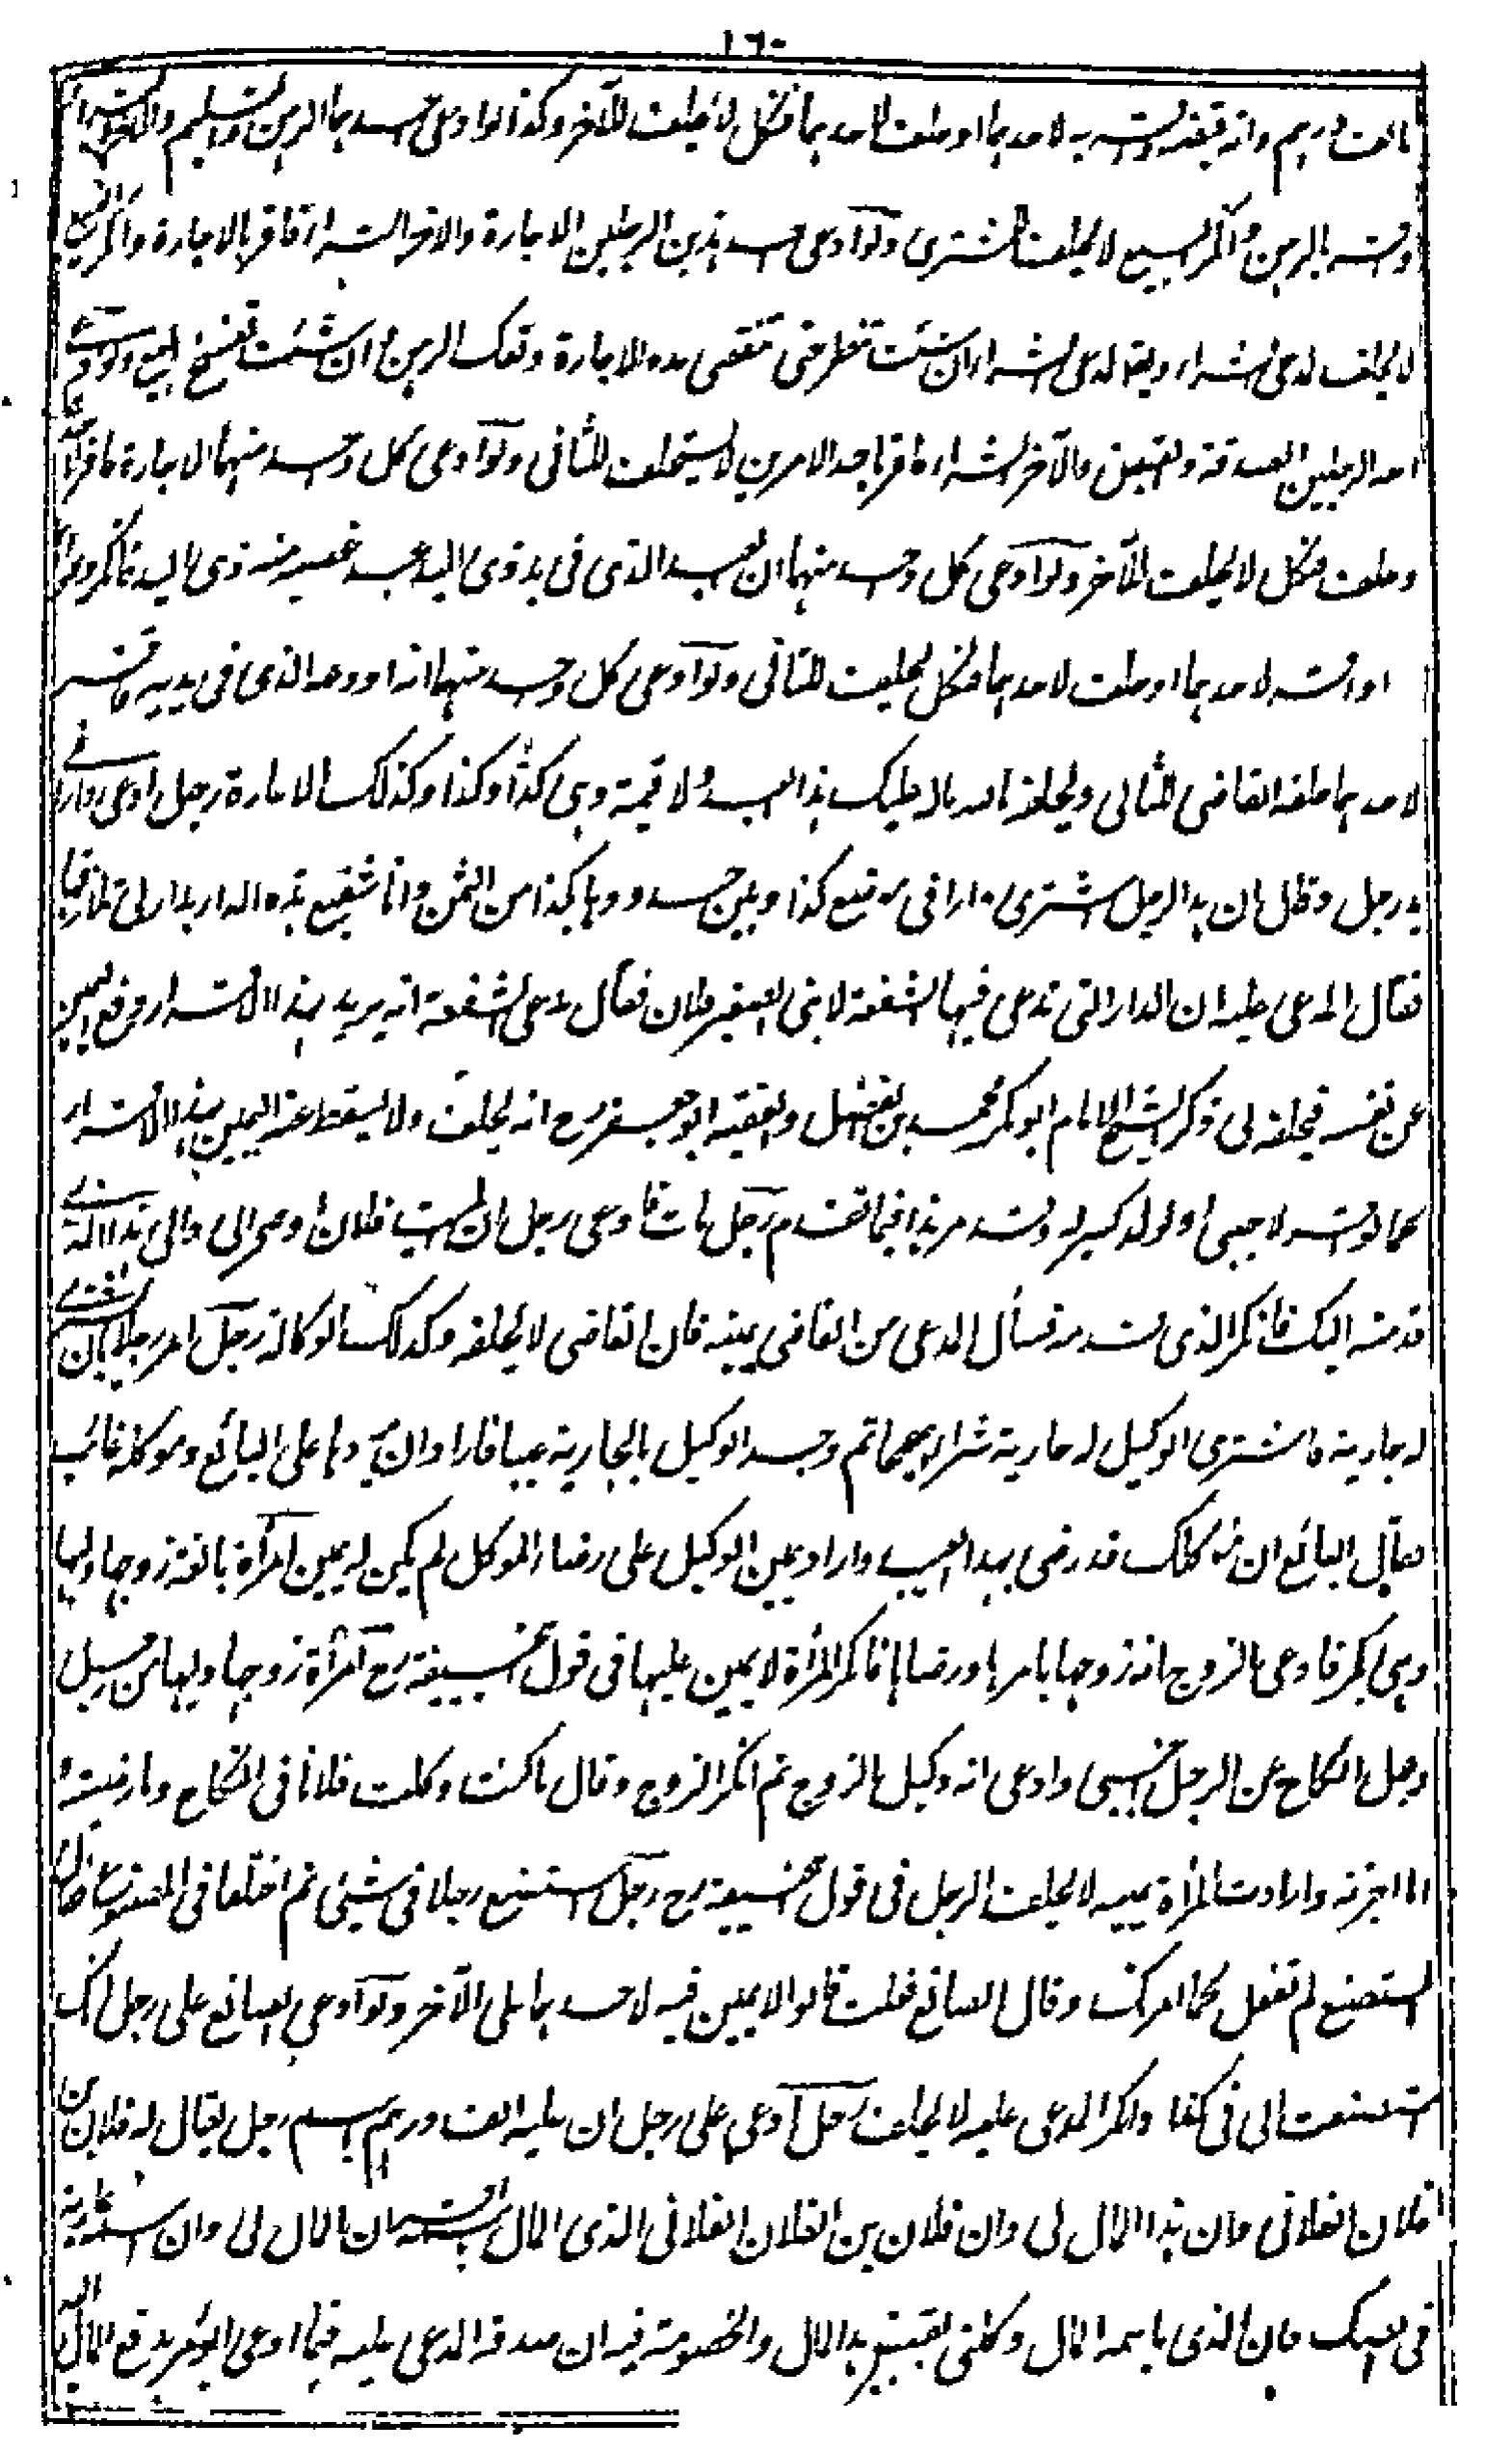 ١٦٠
بالف درهم وانه قبضه فاقر به لاحدهما او حلف لاحدهما فنكل لا يحلف للآخر وكذا لو ادعى احدهما الرهن والتسليم والآخر الشراء
فاقر بالرهن وانكر البيع لا يحلف للمشتري ولو ادعى احد هذين الرجلين الاجارة والآخر الشراء فاقر بالاجارة وانكر البيع
لا يحلف لمدعي الشراء ويقال لمدعي الشراء ان شئت فانتظر حتى تنقضي مدة الاجارة وتفك الرهن وان شئت فافسخ البيع ولو ادعى
احد الرجلين الصدقة والقبض والآخر الشراء فاقر باحد الامرين لا يستحلف للثاني ولو ادعى كل واحد منهما الاجارة فاقر لاحدهما
وحلف فنكل لا يحلف للآخر ولو ادعى كل واحد منهما ان العبد الذي في يد ذي اليد عبده غصبه منه ذو اليد فانكر
او اقر لاحدهما او حلف لاحدهما فنكل يحلف للثاني ولو ادعى كل واحد منهما انه اودعه الذي في يديه فاقر
لاحدهما حلفه القاضي للثاني ويحلفه بالله ما له عليك هذا العبد ولا قيمته وهي كذا وكذا وكذلك الاعارة رجل ادعى دارا في
يد رجل وقال ان هذا الرجل اشترى دارا في موضع كذا وبين حدودها بكذا من الثمن وانا شفيع هذه الدار بدار لي تلازقها
فقال المدعى عليه ان الدار التي تدعي فيها الشفعة لابني الصغير فلان فقال مدعي الشفعة انه يريد بهذا الاقرار دفع اليمين
عن نفسه فحلفه لي ذكر الشيخ الامام ابو بكر محمد بن الفضل والفقيه ابو جعفر رح انه يحلف ولا يسقط عنه اليمين بهذا الاقرار
كما لو اقر لاجنبي او لولد كبير له وقد مر هذا فيما تقدم رجل مات فادعى رجل ان الميت فلان اوصى الي والى هذا الذي
قدمته اليك فانكر الذي قدمه فسأل المدعي من القاضي يمينه فان القاضي لا يحلفه وكذلك الوكالة رجل امر رجلا بان يشتري
له جارية فاشترى الوكيل له جارية شراء صحيحا ثم وجد الوكيل بالجارية عيبا فاراد ان يردها على البائع وموكله غائب
فقال البائع ان موكلك قد رضي بهذا العيب واراد يمين الوكيل على رضا الموكل لم يكن له يمين امرأة بالغة زوجها وليها
وهي بكر فادعى الزوج انه زوجها بامرها ورضاها فانكر المرأة لا يمين عليها في قول ابي حنيفة رح امرأة زوجها وليها من رجل
وقبل النكاح عن الرجل اجنبي وادعى انه وكيل الزوج ثم انكر الزوج وقال ما كنت وكلت فلانا في النكاح وما رضيته و
لا اجزته وارادت المرأة يمينه لا يحلف الرجل في قول ابي حنيفة رح رجل استصنع رجلا في شيئ ثم اختلفا في المصنوع فقال
المستصنع لم تفعل كما امرتك وقال الصانع فعلت قالوا لا يمين فيه لاحدهما على الآخر ولو ادعى الصانع على رجل انك
استصنعت الي في كذا وانكر المدعى عليه لا يحلف رجل ادعى على رجل ان عليه الف درهم باسم رجل يقال له فلان بن
فلان الفلاني وان هذا المال لي وان فلان بن الفلان الفلاني الذي المال باسمه اقر بان المال لي وان اسمه عارية
في الصك وان الذي باسمه المال وكلني بقبض هذا المال والخصومة فيه ان صدقه المدعى عليه فيما ادعى يؤمر بدفع المال اليه